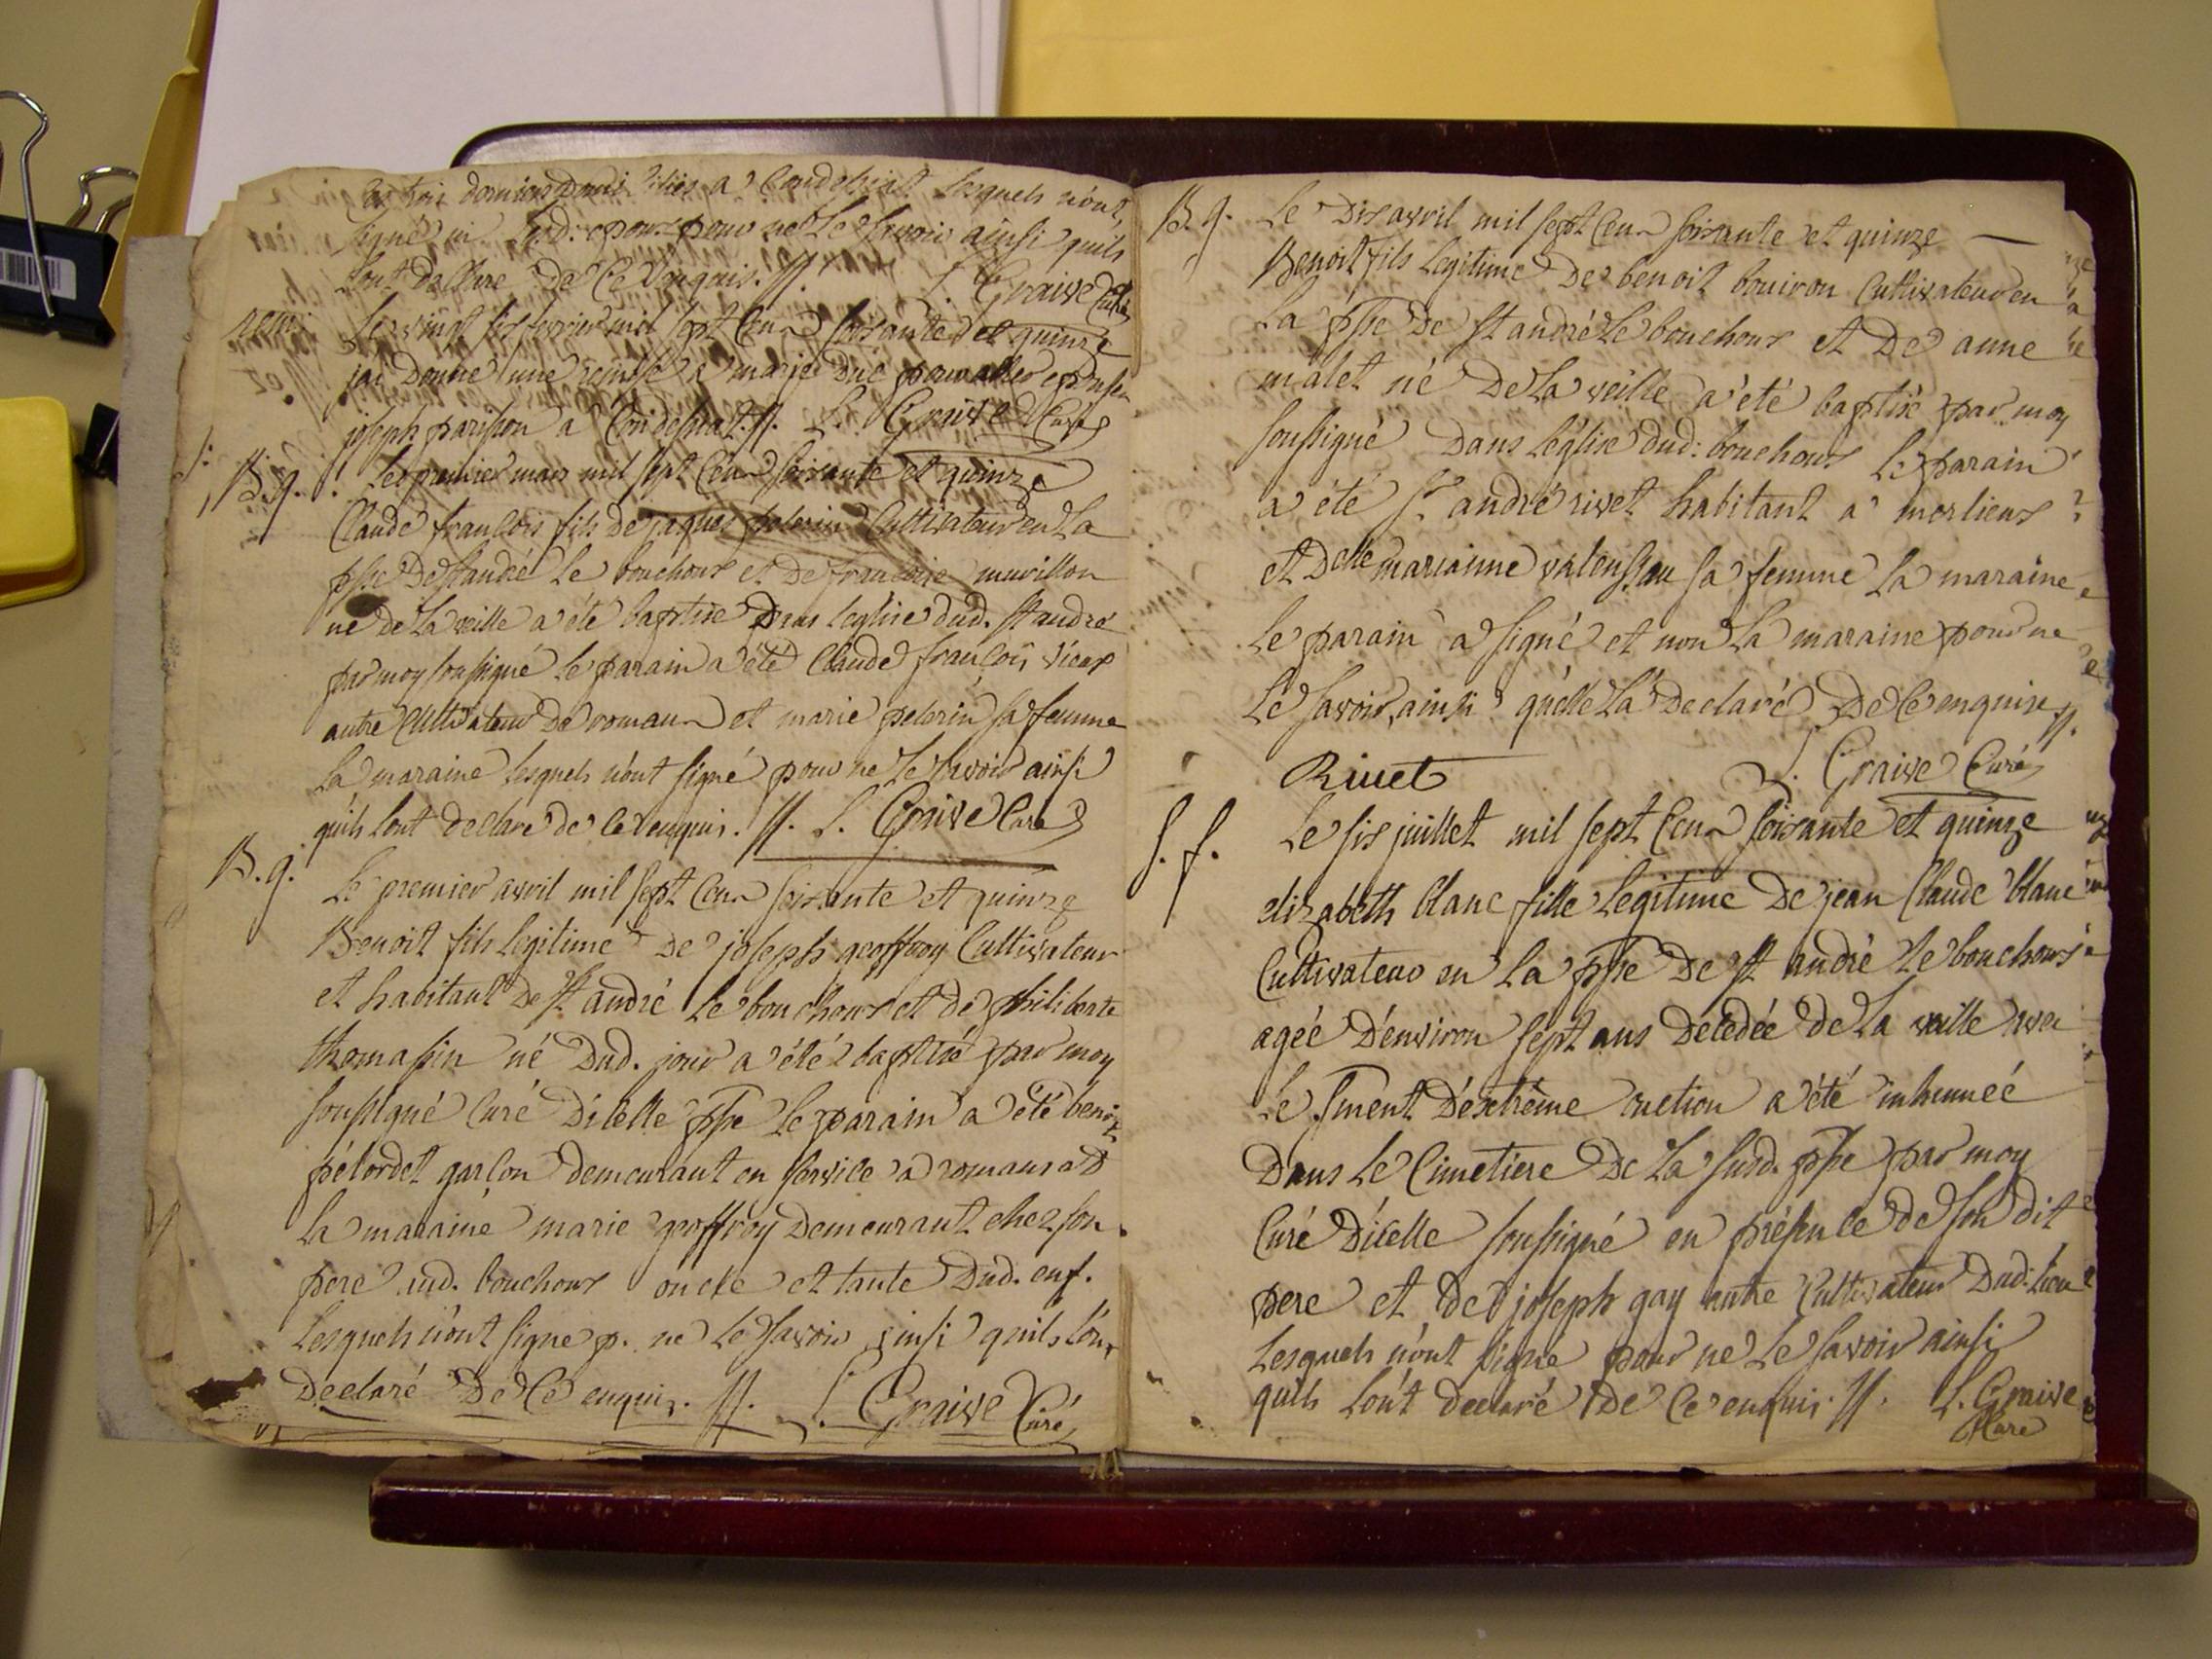 domiciliés a Condeissiat lesquels n'ont
signé ni lesd. epoux pour ne le savoir ainsi quils
l'ont déclaré de ce enquis. //. L. Graive Curé
remise
Le vingt six fevrier mil sept cent soixante et quinze
jai donné une remise a marie duc pour aller epouser
joseph parisson a Condeissiat. //. L. Graive Curé
B.g.
Le premier mars mil sept cent soixante et quinze
Claude françois fils de jaques pelerin Cultivateur en la
ppsse de St andré le bouchoux et de francoise muvillon
né de la veille a été baptisé dans l'eglise dud. St andré
par moy soussigné le parain a été Claude françois vieux
autre Cultivateur de roman et marie pelerin sa femme
la maraine lesquels n'ont signé pour ne le savoir ainsi
quils l'ont declaré de ce enquis. //. L. Graive Curé
B.g.
Le premier avril mil sept cent soixante et quinze
Benoit fils legitime de joseph geoffroy Cultivateur
et habitant de St andré le bouchoux et de philiberte
thomassin né dud. jour a été baptisé par moy
soussigné Curé dicelle ppsse le parain a été benoit
pélordet garçon demeurant en service a romans et
la maraine marie geoffroy demeurant chez son
pere aud. bouchoux oncle et tante dud. enf.
lesquels n'ont signé p. ne le savoir ainsi quils l'ont
declaré de ce enquis. //. L. Graive Curé
B.g.
Le dix avril mil sept cent soixante et quinze
Benoit fils legitime de benoit bouiron Cultivateur en
la ppsse de St andré le bouchoux et de anne
malet né de la veille a été baptisé par moy
soussigné dans l'église dud: bouchoux le parain
a été Sr. andré rivet habitant a merlieux
et Delle marianne sa femme la maraine
le parain a signé et non la maraine pour ne
le savoir, ainsi qu'elle l'a declaré de ce enquise //.
Rivet L. Graive Curé
S. f.
Le six juillet mil sept cent soixante et quinze
elizabeth blanc fille legitime de jean Claude blanc
Cultivateur en la ppsse de St andré le bouchoux
ageé d'environ sept ans décédée de la veille avec
le sment d'extrême onction a été inhumeé
dans le Cimetiere de la susd. ppsse par moy
Curé d'icelle soussigné en présence de son dit
pere et de joseph gay autre Cultivateur dud. lieu
lesquels n'ont signé pour ne le savoir ainsi
quils l'ont declaré de ce enquis. //. L. Graive
Curé